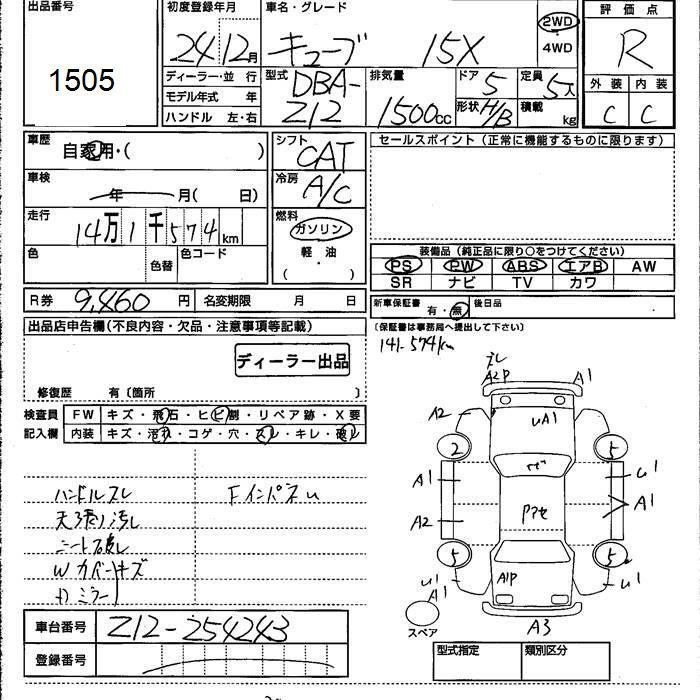 出品番号
1505
初度登録年月
24 12月
車名・グレード
キューブ 15X
2WD
・4WD
評価点
R
ディーラー・並 行
モデル年式 年
ハンドル 左・右
型式
DBA-
Z12
排気量
1500cc
ドア
5
形状 H/B
定員
5人
積載
kg
外装 内装
C C
車歴
自家用・( )
車検
年 月( 日)
走行
14万1千574km
色
色替
色コード
シフト
CAT
冷房
A/C
燃料
ガソリン
軽・油
( )
セールスポイント(正常に機能するものに限ります)
装備品(純正品に限り○をつけてください)
PS PW ABS エアB AW
SR ナビ TV カワ
R券 9,460円 名変期限 月 日
新車保証書 有・無 後日品
(保証書は事務局へ提出して下さい)
141-574km
出品店申告欄(不良内容・欠品・注意事項等記載)
ディーラー出品
修復歴 有〔箇所 〕
検査員
記入欄
FW キズ・飛石・ヒビ割・リペア跡・X要
内装 キズ・汚れ・コゲ・穴・スレ・キレ・破レ
ハンドルスレ
天張り汚し
シート破し
Wカバーキズ
ミラー
Fインパネu
ズレ
A2P
A1
A2
uA1
2
5
A1
u1
A1
A2
Pアセ
5
5
u1
A1
A1P
u1
スペア
A3
車台番号 Z12-254243
登録番号
型式指定 類別区分